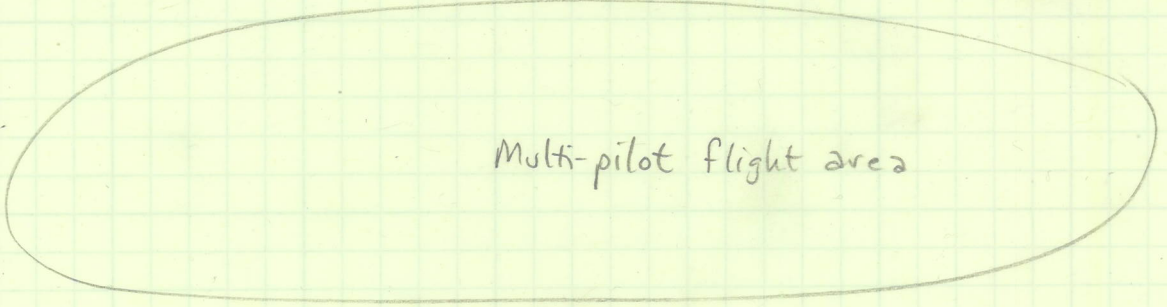 Multi-pilot flight area